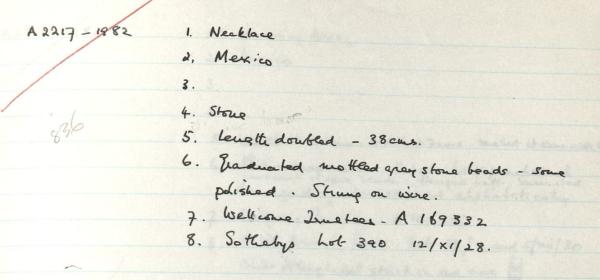 A2217-1982
1. Necklace
2. Mexico
3.
4. Stone
5. Length doubled - 38cms.
6. Graduated mottled gray stone beads - some
polished. Strung on wire.
7. Wellcome Trustees - A 169332
8. Sothebys Lot 390 12/XI/28.
836